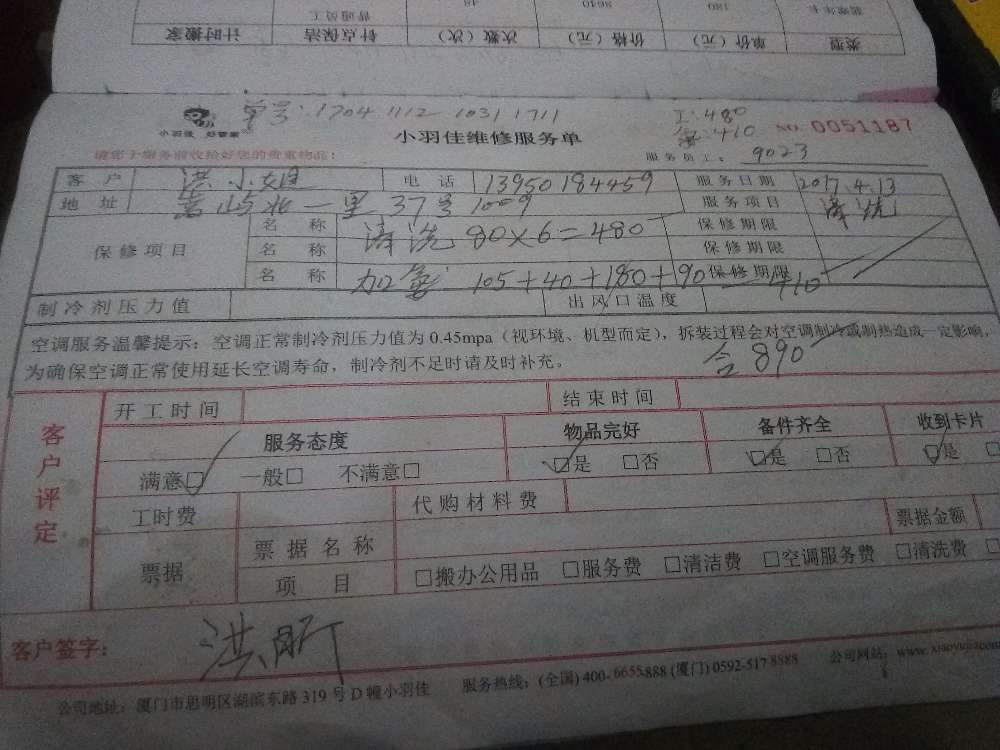 类型 单价（元） 价格（元） 次数（次） 针点保洁 计时搬家
180 8640 48 普通员工
学号：1704 1112 1031 1711
工：480
氟：410
小羽佳 好管家
小羽佳维修服务单
NO. 0051187
请您于服务前收拾好您的贵重物品！
服务员工： 9023
客户 洪小姐 电话 13950184459 服务日期 2017.4.13
地址 嵩屿北一里37号1009 服务项目 清洗
保修项目
名称 清洗 80×6=480 保修期限
名称 保修期限
名称 加氟 105+40+180+90 保修期限 410
制冷剂压力值 出风口温度
空调服务温馨提示：空调正常制冷剂压力值为0.45mpa（视环境、机型而定），拆装过程会对空调制冷或制热造成一定影响，
为确保空调正常使用延长空调寿命，制冷剂不足时请及时补充。
合890
客户评定
开工时间 结束时间
服务态度 物品完好 备件齐全 收到卡片
满意□ 一般□ 不满意□ □是 □否 □是 □否 □是
工时费 代购材料费
票据 票据名称 票据金额
项目 □搬办公用品 □服务费 □清洁费 □空调服务费 □清洗费
客户签字：
公司地址：厦门市思明区湖滨东路319号D幢小羽佳 服务热线：(全国) 400-6655888 (厦门) 0592-517 8888 公司网站：www.xiaoyujia.com